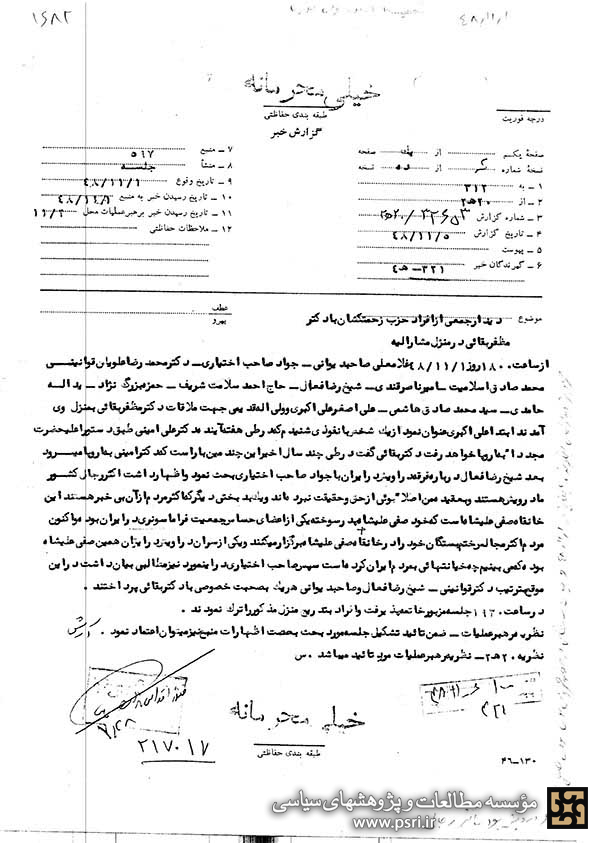 ۱۶۸۲
۴۸/۱۱/۱
خیلی محرمانه
طبقه بندی حفاظتی
گزارش خبر
درجه فوریت
صفحه یکم از صفحه
نسخه شماره از ده نسخه
۱ – به ۳۱۲
۲ – از ۲۰ه۲
۳ – شماره گزارش
۴ – تاریخ گزارش ۴۸/۱۱/۵
۵ – پیوست
۶ – گیرندگان خبر ۳۲۱–
۷ – منبع ۵۶۷
۸ – منشأ جلسه
۹ – تاریخ وقوع ۴۸/۱۱/۱
۱۰ – تاریخ رسیدن خبر به منبع
۱۱ – تاریخ رسیدن خبر برهبرعملیات محل ۱۱/۲
۱۲ – ملاحظات حفاظتی
موضوع دیدار جمعی از افراد حزب زحمتکشان با دکتر
عطف
پیرو
مظفر بقائی در منزل مشارالیه
از ساعت ۱۸۰۰ روز ۴۸/۱۱/۱ غلامعلی صاحبدیوانی – جواد صاحب اختیاری – دکتر محمد رضا علویان قوانینی
محمد صادق اسلامیت – امیر ناصر قندی – شیخ رضا فعال – حاج احمد سلامت شریف – حمزه بزرگ نژاد – ید اله
حامدی – سید محمد صادق هاشمی – علی اصغر علی اکبری و ولی اله قدیمی جهت ملاقات دکتر مظفر بقائی بمنزل وی
آمدند ابتدا علی اکبری عنوان نمود از یک شخص با نفوذی شنیدم که در طی هفته آینده دکتر علی امینی طبق دستور اعلیحضرت
مجدداً به اروپا خواهد رفت دکتر بقائی گفت در طی چند سال اخیر این چندمین بار است که دکتر امینی به اروپا میرود
بعد شیخ رضا فعال درباره فرقه دراویز در ایران با جواد صاحب اختیاری بحث نمود و اظهار داشت اکثر رجال کشور
ما درویش هستند و بعقیده من اصلاً بوئی از حق و حقیقت نبرده اند و یک بدبختی دیگر که اکثر مردم از آن بی خبر هستند این
خانقاه صفی علیشاه است که خود صفی علیشاه پدر سوخته یکی از اعضای حساس جمعیت فراماسونری در ایران بود و اکنون
مردم اکثر مجالس ختم بستگان خود را در خانقاه صفی علیشاه برگزار میکنند و یکی از سران دراویز در ایران همین صفی علیشاه
بوده که می بینیم چه خیانتهائی بمردم ایران کرده است سپس صاحب اختیاری در این مورد نیز مطالبی بیان داشت در این
موقع بترتیب دکتر قوانینی – شیخ رضا فعال و صاحبدیوانی هر یک بصحبت خصوصی با دکتر بقائی پرداختند .
در ساعت جلسه مزبور خاتمه پذیرفت و افراد بتدریج منزل مذکور را ترک نمودند .
نظریه رهبر عملیات – ضمن تائید تشکیل جلسه مورد بحث بصحت اظهارات منبع نیز میتوان اعتماد نمود .
نظریه ۲۰ه۲ – نظریه رهبر عملیات مورد تائید میباشد . س
خیلی محرمانه
طبقه بندی حفاظتی
۳۲۱
۲۱۷۰۱۷
۴۶–۱۳۰
مؤسسه مطالعات و پژوهشهای سیاسی
www.psri.ir